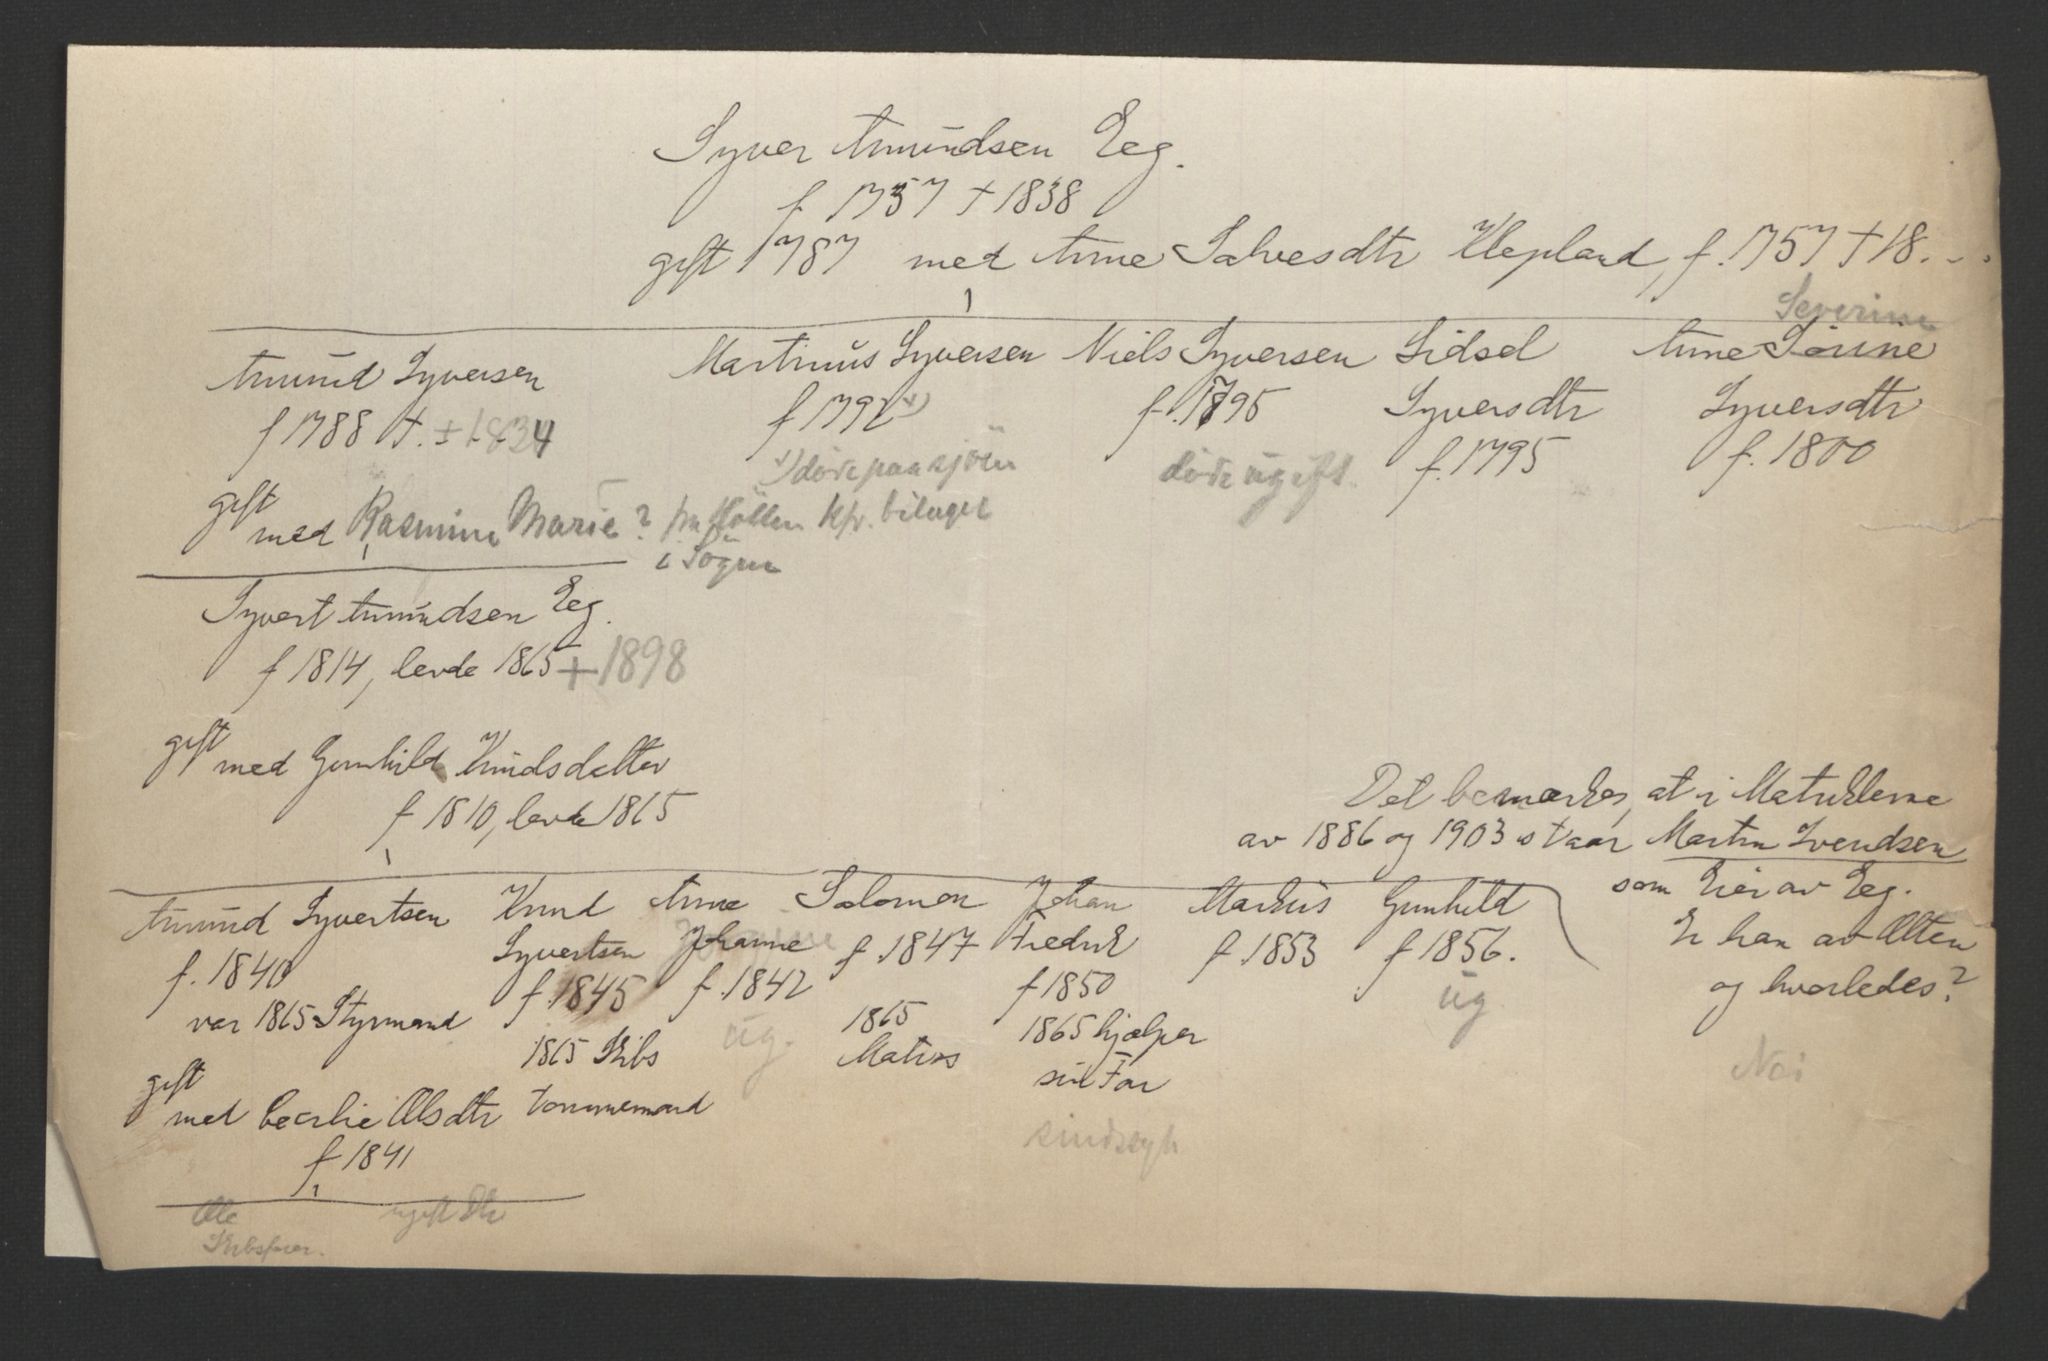 Syver Amundsen Eeg.
f 1757 † 1838
gift 1787 med Anne Salvesdtr Klepland, f. 1757 † 18...
Severine
Amund Syversen
f 1788 †. † 1834
gift
med Rasmine Marie? fra Höllen kfr. bilaget
i Sögne
Martinus Syversen
f 1792 x)
x) döde paa sjöen
Niels Syversen
f. 1795
döde ugift.
Sidsel
Syversdtr
f. 1795
Anne Sörine
Syversdtr
f. 1800
Syvert Amundsen Eeg.
f 1814, levde 1865 † 1898
gift
med Gunhild Knudsdatter
f 1810, levde 1865
Det bemærkes, at i Matriklerne
av 1886 og 1903 staar Martin Svendsen
som Eier av Eeg.
Er han av Ætten
og hvorledes?
Nei
Amund Syvertsen
f. 1840
var 1865 Styrmand
gift
med Cecilie Olsdtr
f 1841
Knud
Syvertsen
f. 1845
1865 Skibs
tømmermand
Anne
Johanne
f. 1842
ug.
Salomon
f. 1847
1865
Matros
Johan
Fredrik
f 1850
1865 hjælper
sin Far
sindssyk
Markus
f. 1853
Gunhild
f 1856.
ug
Ole
Skibsfører.
ugift Dtr